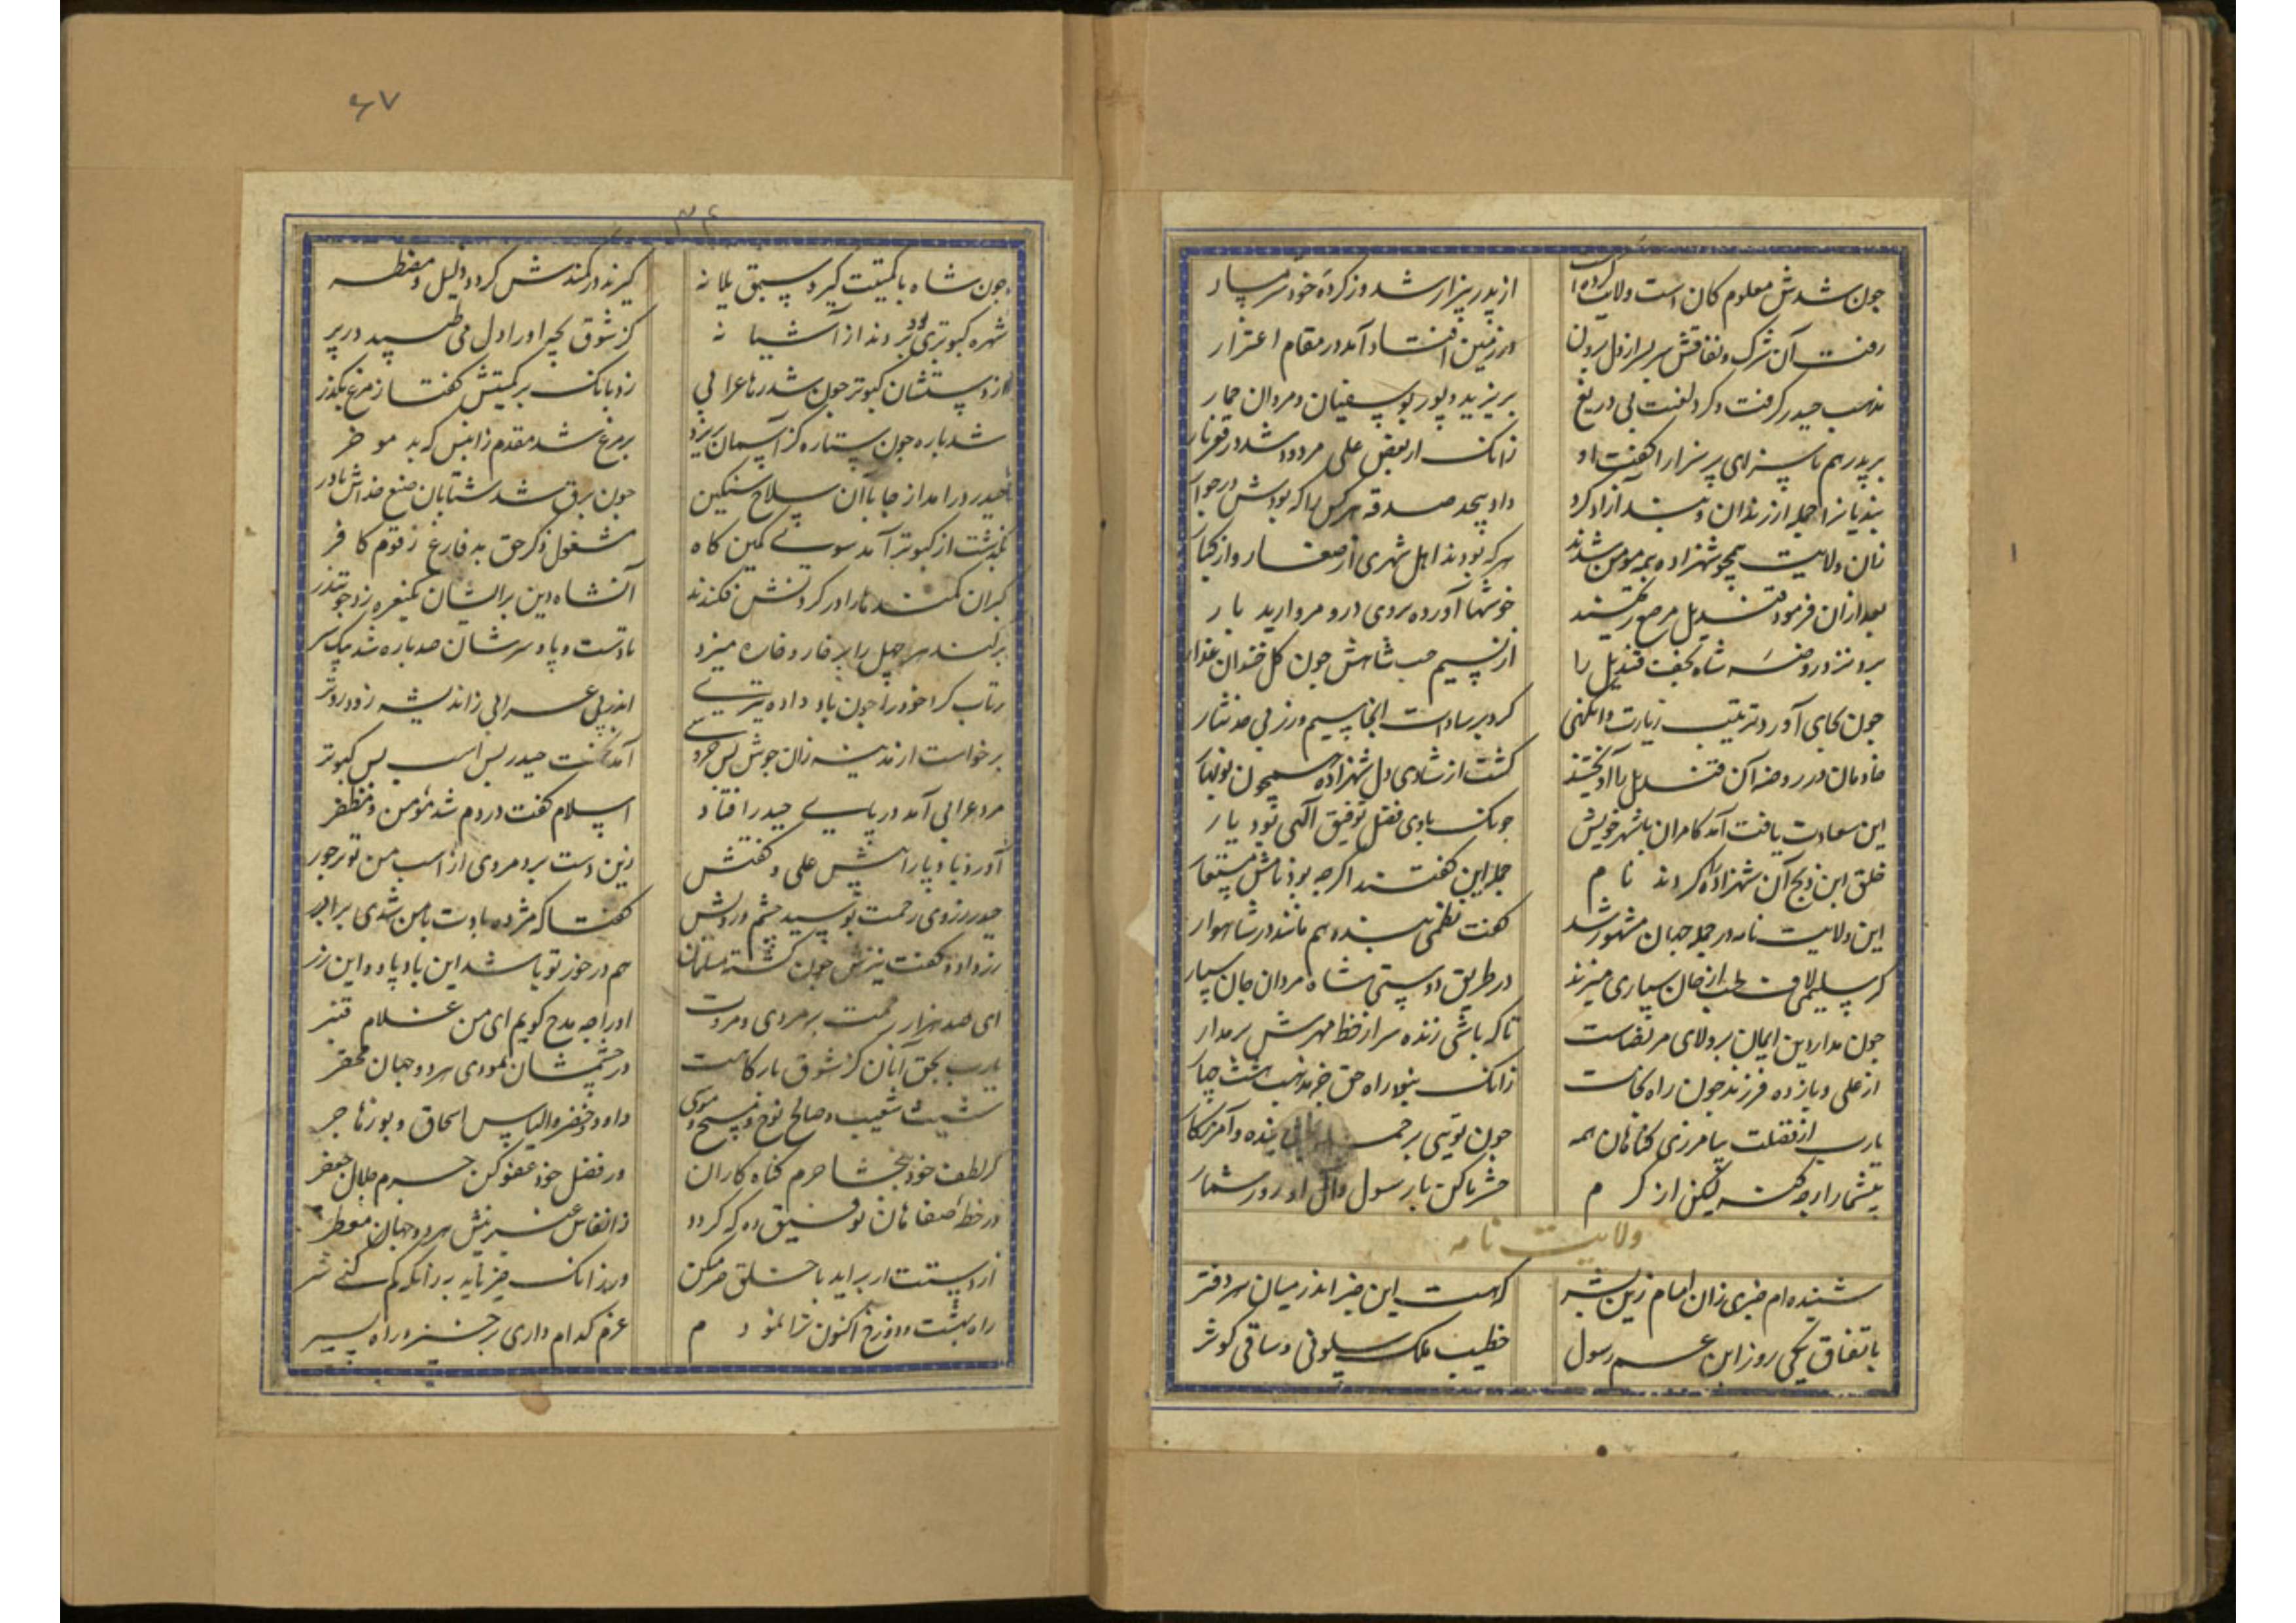 جون شدش معلوم کان است ولایت کرده از پدر بیزار شد وز کرده خود شرمسار
رفت آن شرک و نفاقش سربسر از دل برون در زمین افتاد آمد در مقام اعتذار
مذهب حیدر گرفت و کرد لعنت بی دریغ بر یزید و پور بوسفیان و مروان حمار
بر پدر هم ناسزای بر سزا را گفت او زانک از بغض علی مردود شد در قعر نار
بندیانرا جمله از زندان و بند آزاد کرد داد بیحد صدقه هر کس را که بودش
زان ولایت همچو شهزاده همه مومن شدند هر که بودند اهل شهری از صغار و از کبار
بعد از آن فرمود قندیل مرصع خوشها آورده بروی در و مروارید بار
برونز در روضه شاه نجف قندیل را از نسیم حب شاهش جون کل خندان عذار
جون بجای آورد ترتیب زیارت وانکهی کرد بر سادات انجا سیم و زر بی حد نثار
خادمان در روضه آن قندیل را آویختند کشت از شادی دل شهزاده همچون نوبهار
این سعادت یافت آمد کامران با شهر خویش جونک بادی فضل توفیق الهی بود یار
خلق ابن ذبح آن شهزاده را کردند نام جمله این گفتند اکرجه بود نامش مستعار
این ولایت نامه در جمله جهان مشهور شد گفت نظمی بنده هم مانند در شاهوار
کر سلیمی لاف حب از جان سپاری میزند در طریق دوستی شاه مردان جان سپار
جون مدار دین ایمان بر ولای مرتضاست تا که باشی زنده سر از خط مهرش بر مدار
از علی و یازده فرزند جون راه نجات زانک نبود راه حق جز مذهب هشت جهار
یارب از فضلت بیامرزی کناهان همه جون تویی بر جمله بنده و آمرزکار
بیشمار ارجه کنه لیکن از کرم حشر ما کن با رسول و آل او روز شمار
ولایت نامه
شنیده ام خبری زان امام زین بشر که هست این خبر اندر میان هر دفتر
باتفاق یکی روز ابن عم رسول خطیب ملک سلونی و ساقی کوثر
۶۷
۳۴
جون شاه با کمیتت کیرد سبق یلانه کیرند در کمندش کردد ذلیل و مضطر
شهره کبوتری بردند از آشیانه کز شوق بچه او را دل می طپید در بر
از دستشان کبوتر جون شد رها عرابی زد بانک بر کمیتش گفتا ز مرغ بکذر
شد باره جون ستاره کز آسمان بریزد بر مرغ شد مقدم زانپس که بد موخر
حیدر درامد از جا با آن سلاح سنکین جون برق شد شتابان صنع خداش یاور
بگذشت از کبوتر آمد سوی کمین کاه مشغول ذکر حق بد فارغ ز قوم کافر
کبران کمندها را در کردنش فکندند آنشاه دین بر ایشان یکنعره زد جو تندر
بر کند هر جهل را بر خار و خاره میزد تا دست و پا و سرشان صد باره شد
پرتاب کرد خود را جون باد داده اندر پی عرابی ز اندیشه زود روتر
برخاست از مدینه زان جوش بس خروشی آمد نخست حیدر پس اسب پس کبوتر
مرد عرابی آمد در پای حیدر افتاد اسلام گفت در دم شد مؤمن و مظفر
آورد بادپا را پیش علی و گفتش زین دست برد مردی از اسب من تو برخور
حیدر ز روی رحمت بوسید چشم و رویش گفتا که مژده بادت با من شدی برابر
زر داد و گفت نیزش جون کشته مسلمان هم در خور تو باشد این بادپا و این زر
ای صد هزار رحمت بر مردی و مروت او را جه مدح کویم ای من غلام قنبر
یارب بحق آنان کز شوق بارکاهت در چشمشان نمودی هر دو جهان محقر
شیث و شعیب و صالح نوح و مسیح و موسی داود و خضر و الیاس اسحاق و بوز هاجر
کز لطف خود ببخشا جرم کناه کاران وز فضل خود عفو کن جرم جلال جعفر
در خطه صفاهان توفیق ده که کردد ز انفاس عنبرینش هر دو جهان معطر
از دستت ار براید با خلق خیر میکن ور زانک خیر ناید به زانکه کم کنی شر
راه بهشت و دوزخ اکنون ترا نمودم عزم کدام داری برخیز و راه بسپر